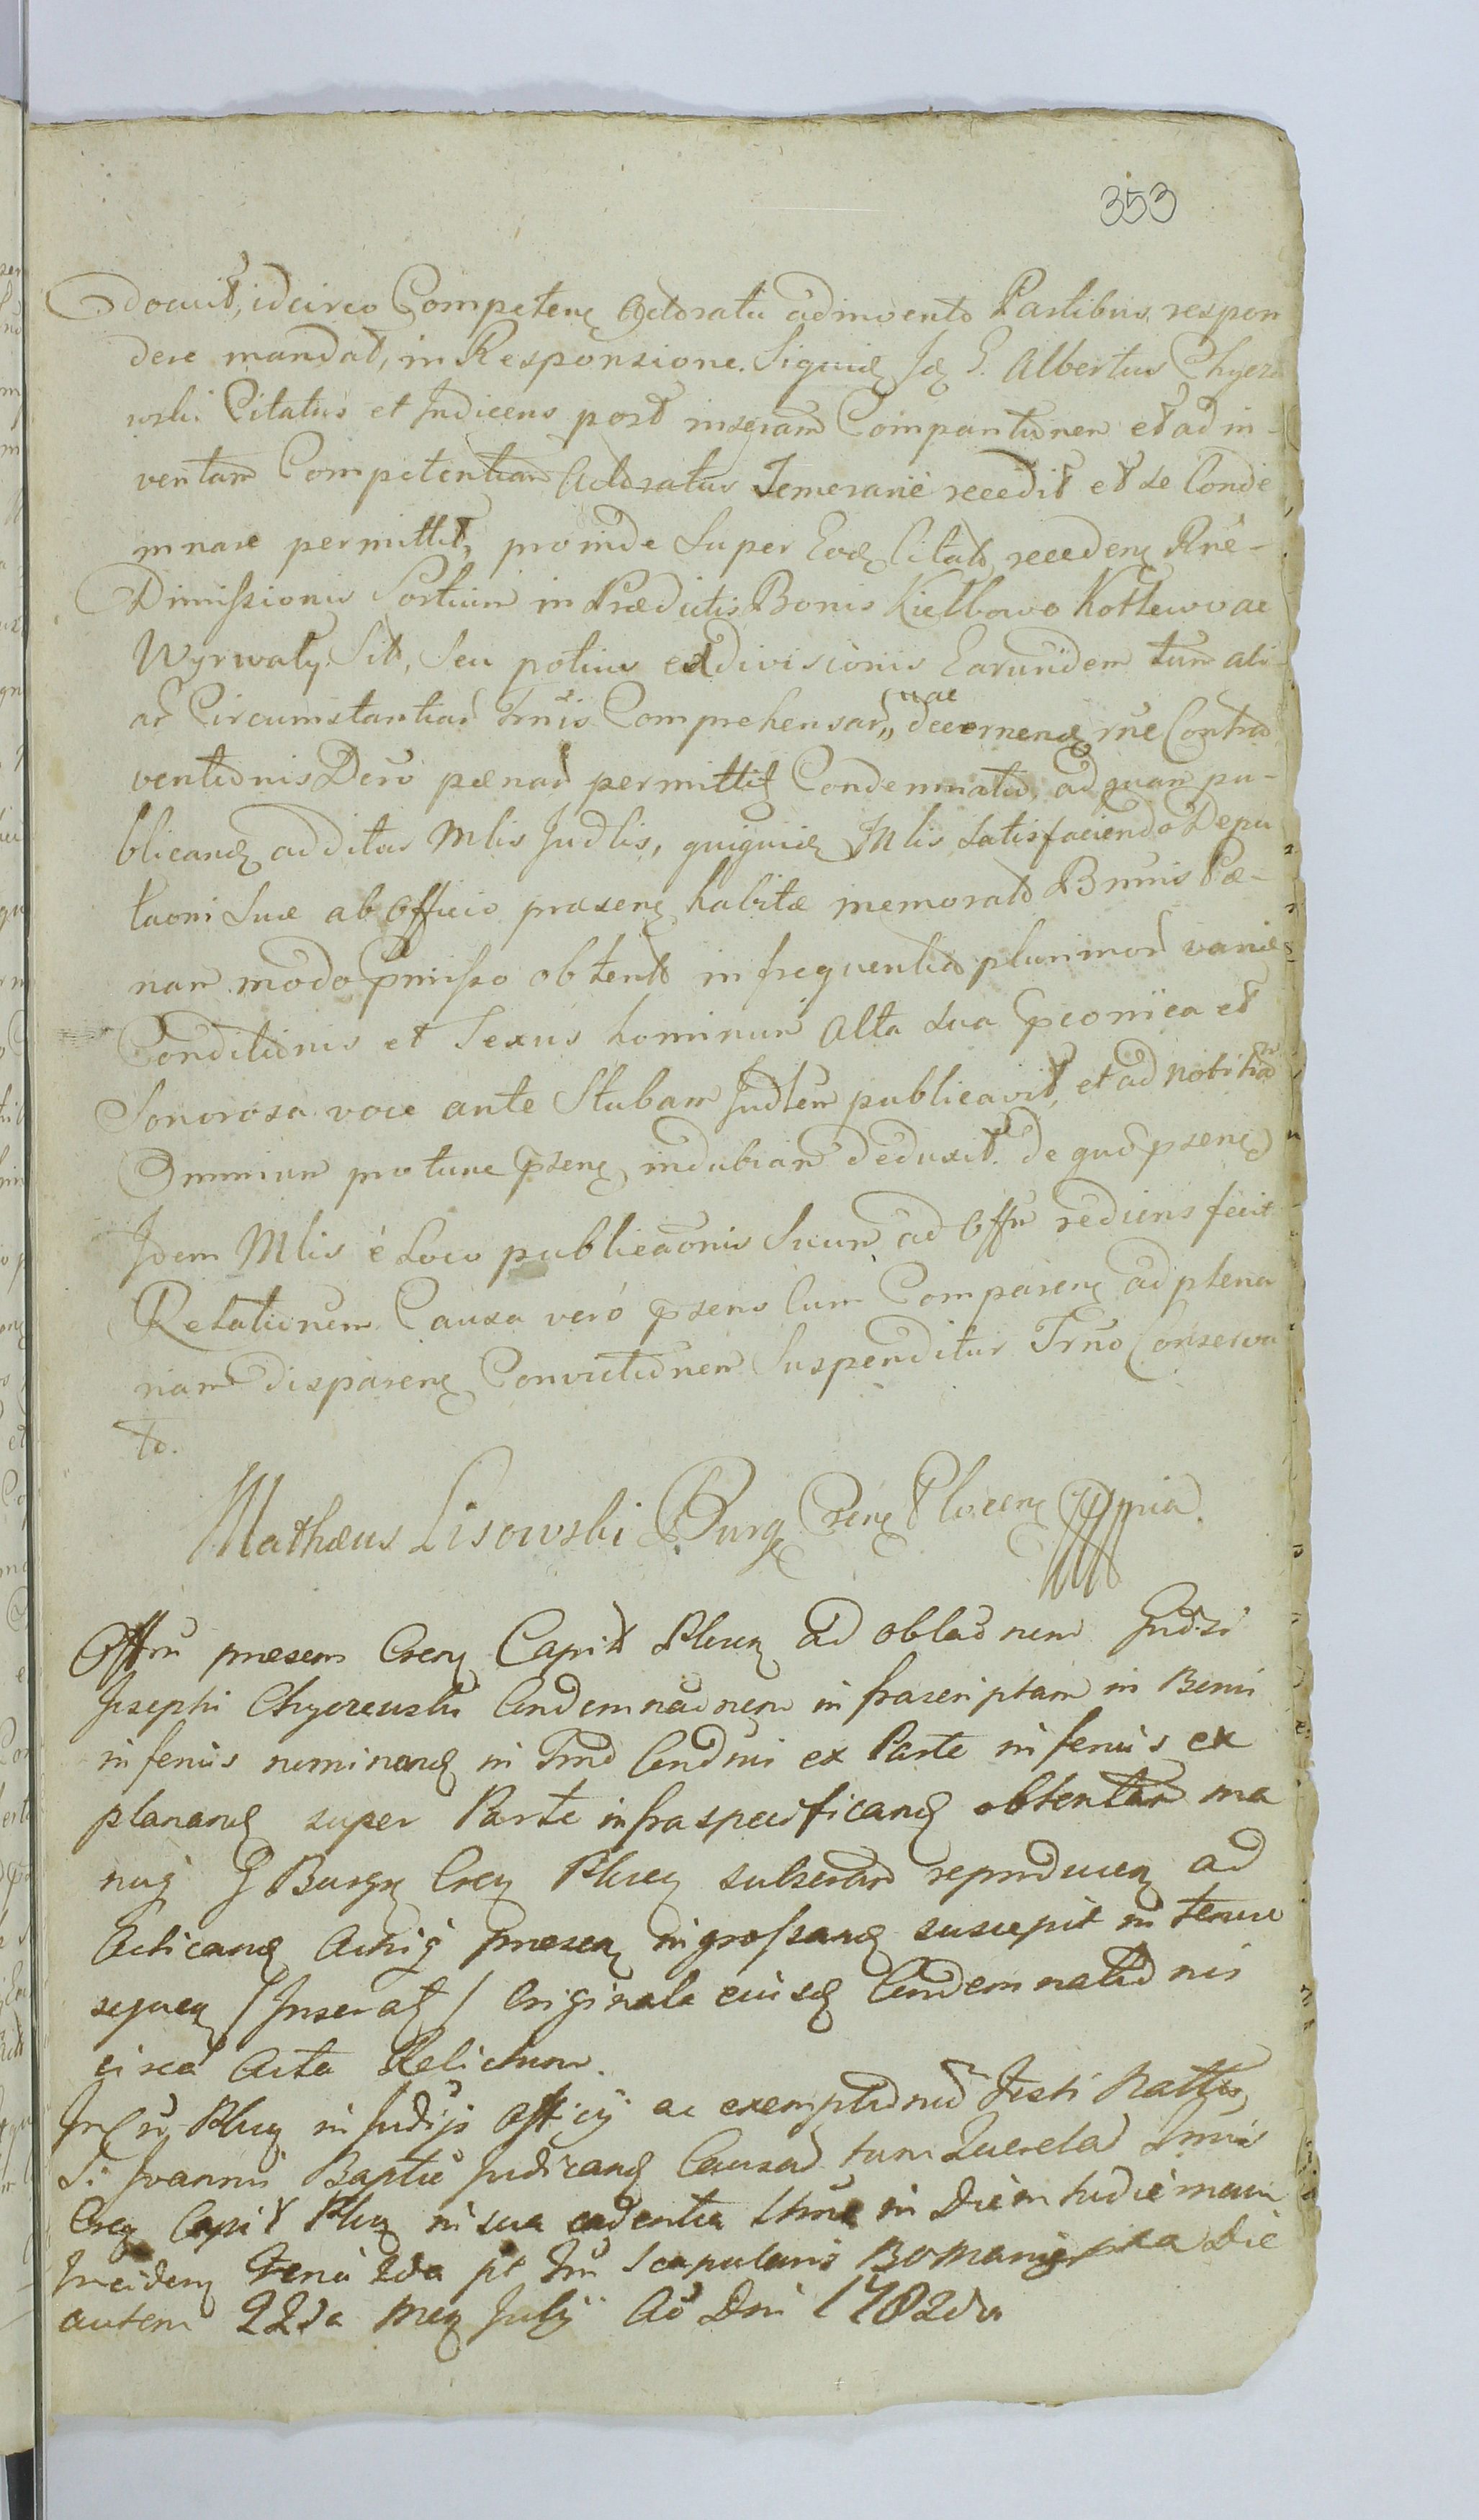 353
docuit, idcirco Competenę Actoratu adinvento Partibus respon
dere mandat, in Responsione. Siquidę Idę G. Albertus Chyczę
wski Citatus et Indicens post inseram Comparitionem et ad in-
ventam Competentiam Actoratus Temerarie recedit et se Conde
mnare permittit, proinde Super Eodę Citato recedenę Rne-
Dimissionis Sortium in Prædictis Bonis Kiełbowo Kotłewo ac
Wyrwały Sit, Seu potius exdivisionis Earundem tum ali
ar Circumstantiar Trnis Comprehensar, suae decernendę rne Contra
ventionis Decŕo pænar permittitę Condemnatio, ad quam pu-
blicandę additus Mlis Judlis, quiquidę Mlis Satisfaciendo Depu
taoni Suæ ab Officio præsenę habitæ memorato Bnnis Pæ-
nam modo pmisso obtento in frequentia plurimor variæ
Conditionis et Sexus hominum Alta Sua pconica et
Sonorosa voce ante Stubam Judlem publicavit, et ad notitiam
Omnium protunc psenę indubiam deduxit. De quo psenę
Idem Mlis è Loco publicaonis Suum ad Offm rediens fecit
Relationem Causa veró psens Cum Comparenę ad plena
riam disparenę Convictionem Suspenditur Trno Conserva
to.
Mathæus Lisowski Burg Crenę Plocenę mpia.
Offm præsens Crenę Capit Plocę ad oblaonem Gudzi
Josephi Chyczewski Condemnaonem infrascriptam in Bonis
inferius nominandę in Trno Condni ex Parte inferius ex
planandę super Parte infraspecificandę obtentam ma
nuq G Burgę Crenę Plocę subscrtam reproducenę ad
Acticandę Actisq præsenę ingrossandę suscepit in tenore
sequenę / Inseratę / Originale eiusdę Condemnationis
circa Acta Relictum.
In Cŕo Plocę in Judijs Officij ac exemptionum Festi Nattis
S. Joannis Baptæ Judicandę Causar tum Querelar Trnis
Crenę Capit Plocę in sua cadentia in Diem hodiernam
Incidenę Feria 2da pt Fm Scapularis B Mariæ Die
autem 22da Menę Julij Ao Dni 1782do